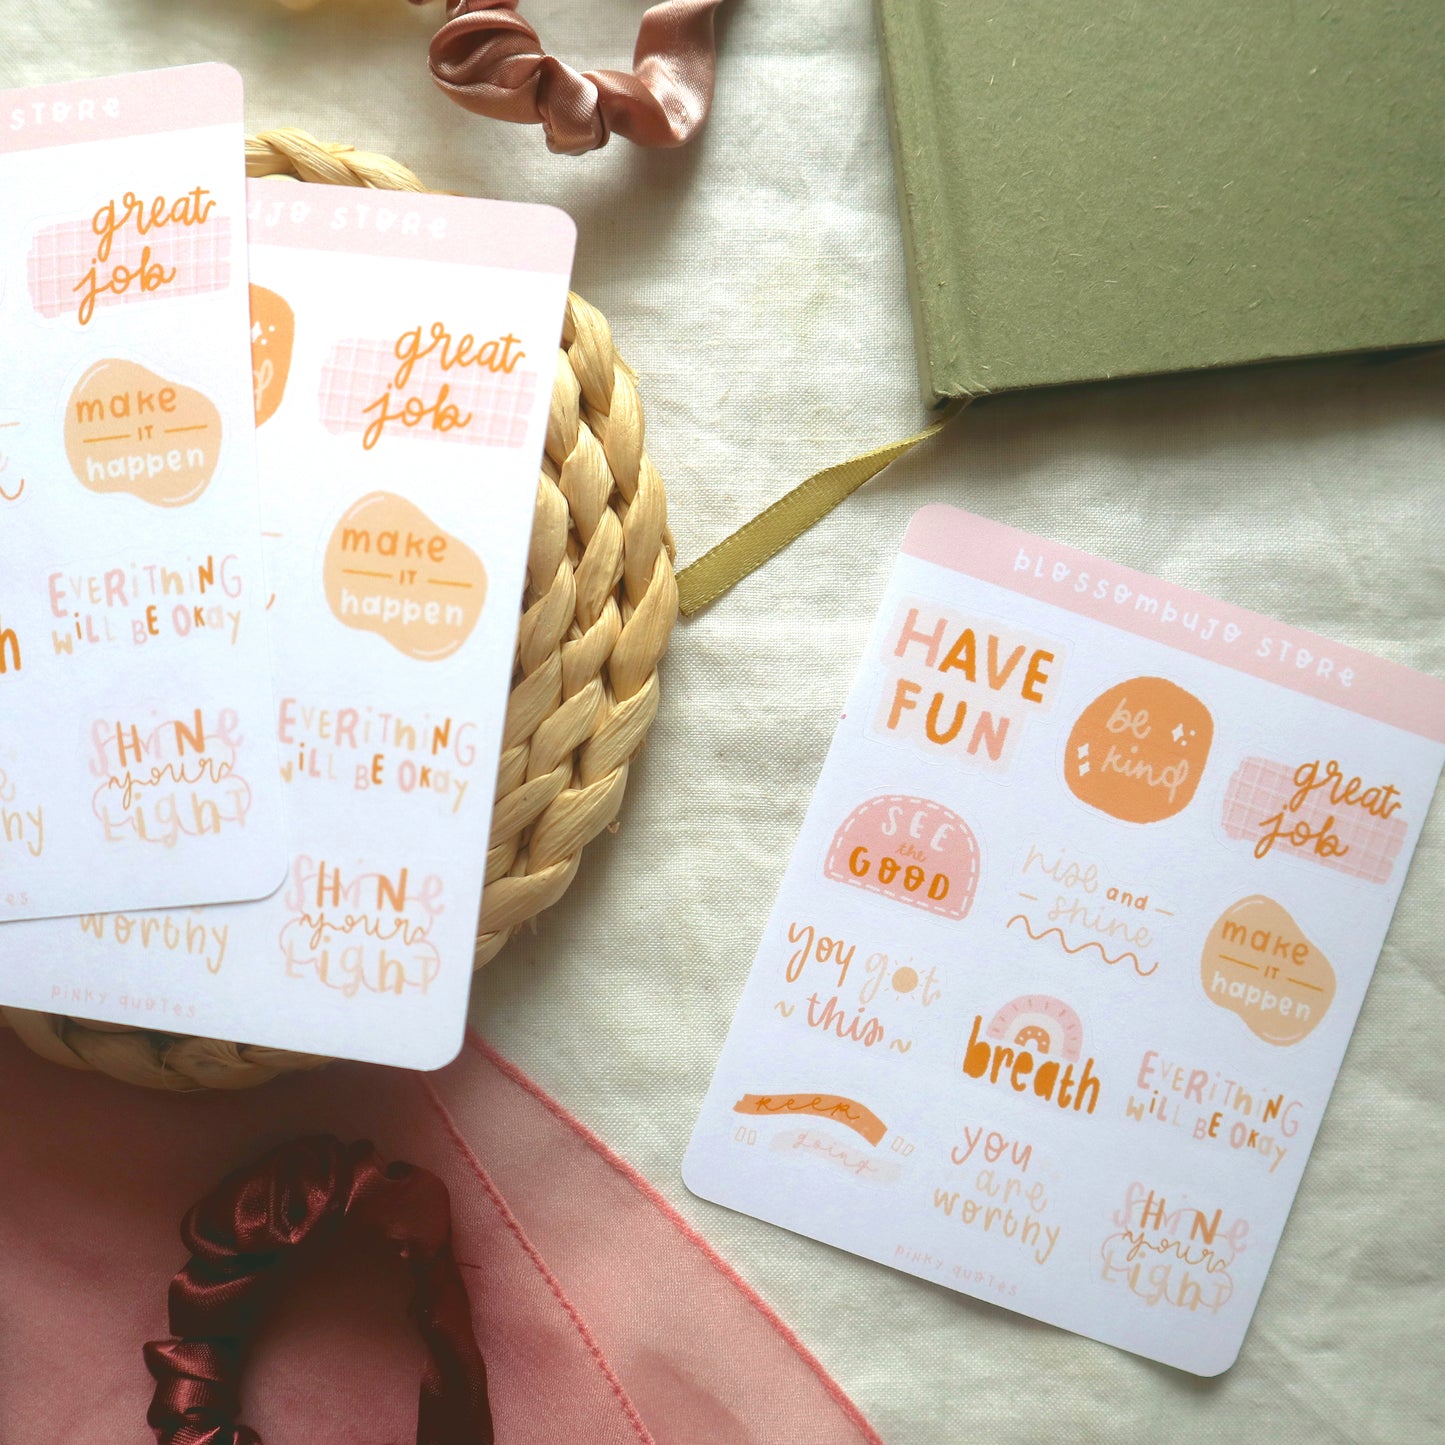 STORE
great
job
make
IT
happen
EVERiThiNG
WiLL BE OKay
SHiNe
your
Light
UJO STORE
great
job
make
IT
happen
EVERiThiNG
WiLL BE OKay
worthy
SHiNe
your
Light
pinky quotes
blossombujo STORE
HAVE
FUN
be
kind
great
job
SEE
the
GOOD
rise and
shine
make
IT
happen
you got
this
breath
EVERiThiNG
WiLL BE OKay
keep
going
you
are
worthy
SHiNe
your
Light
pinky quotes